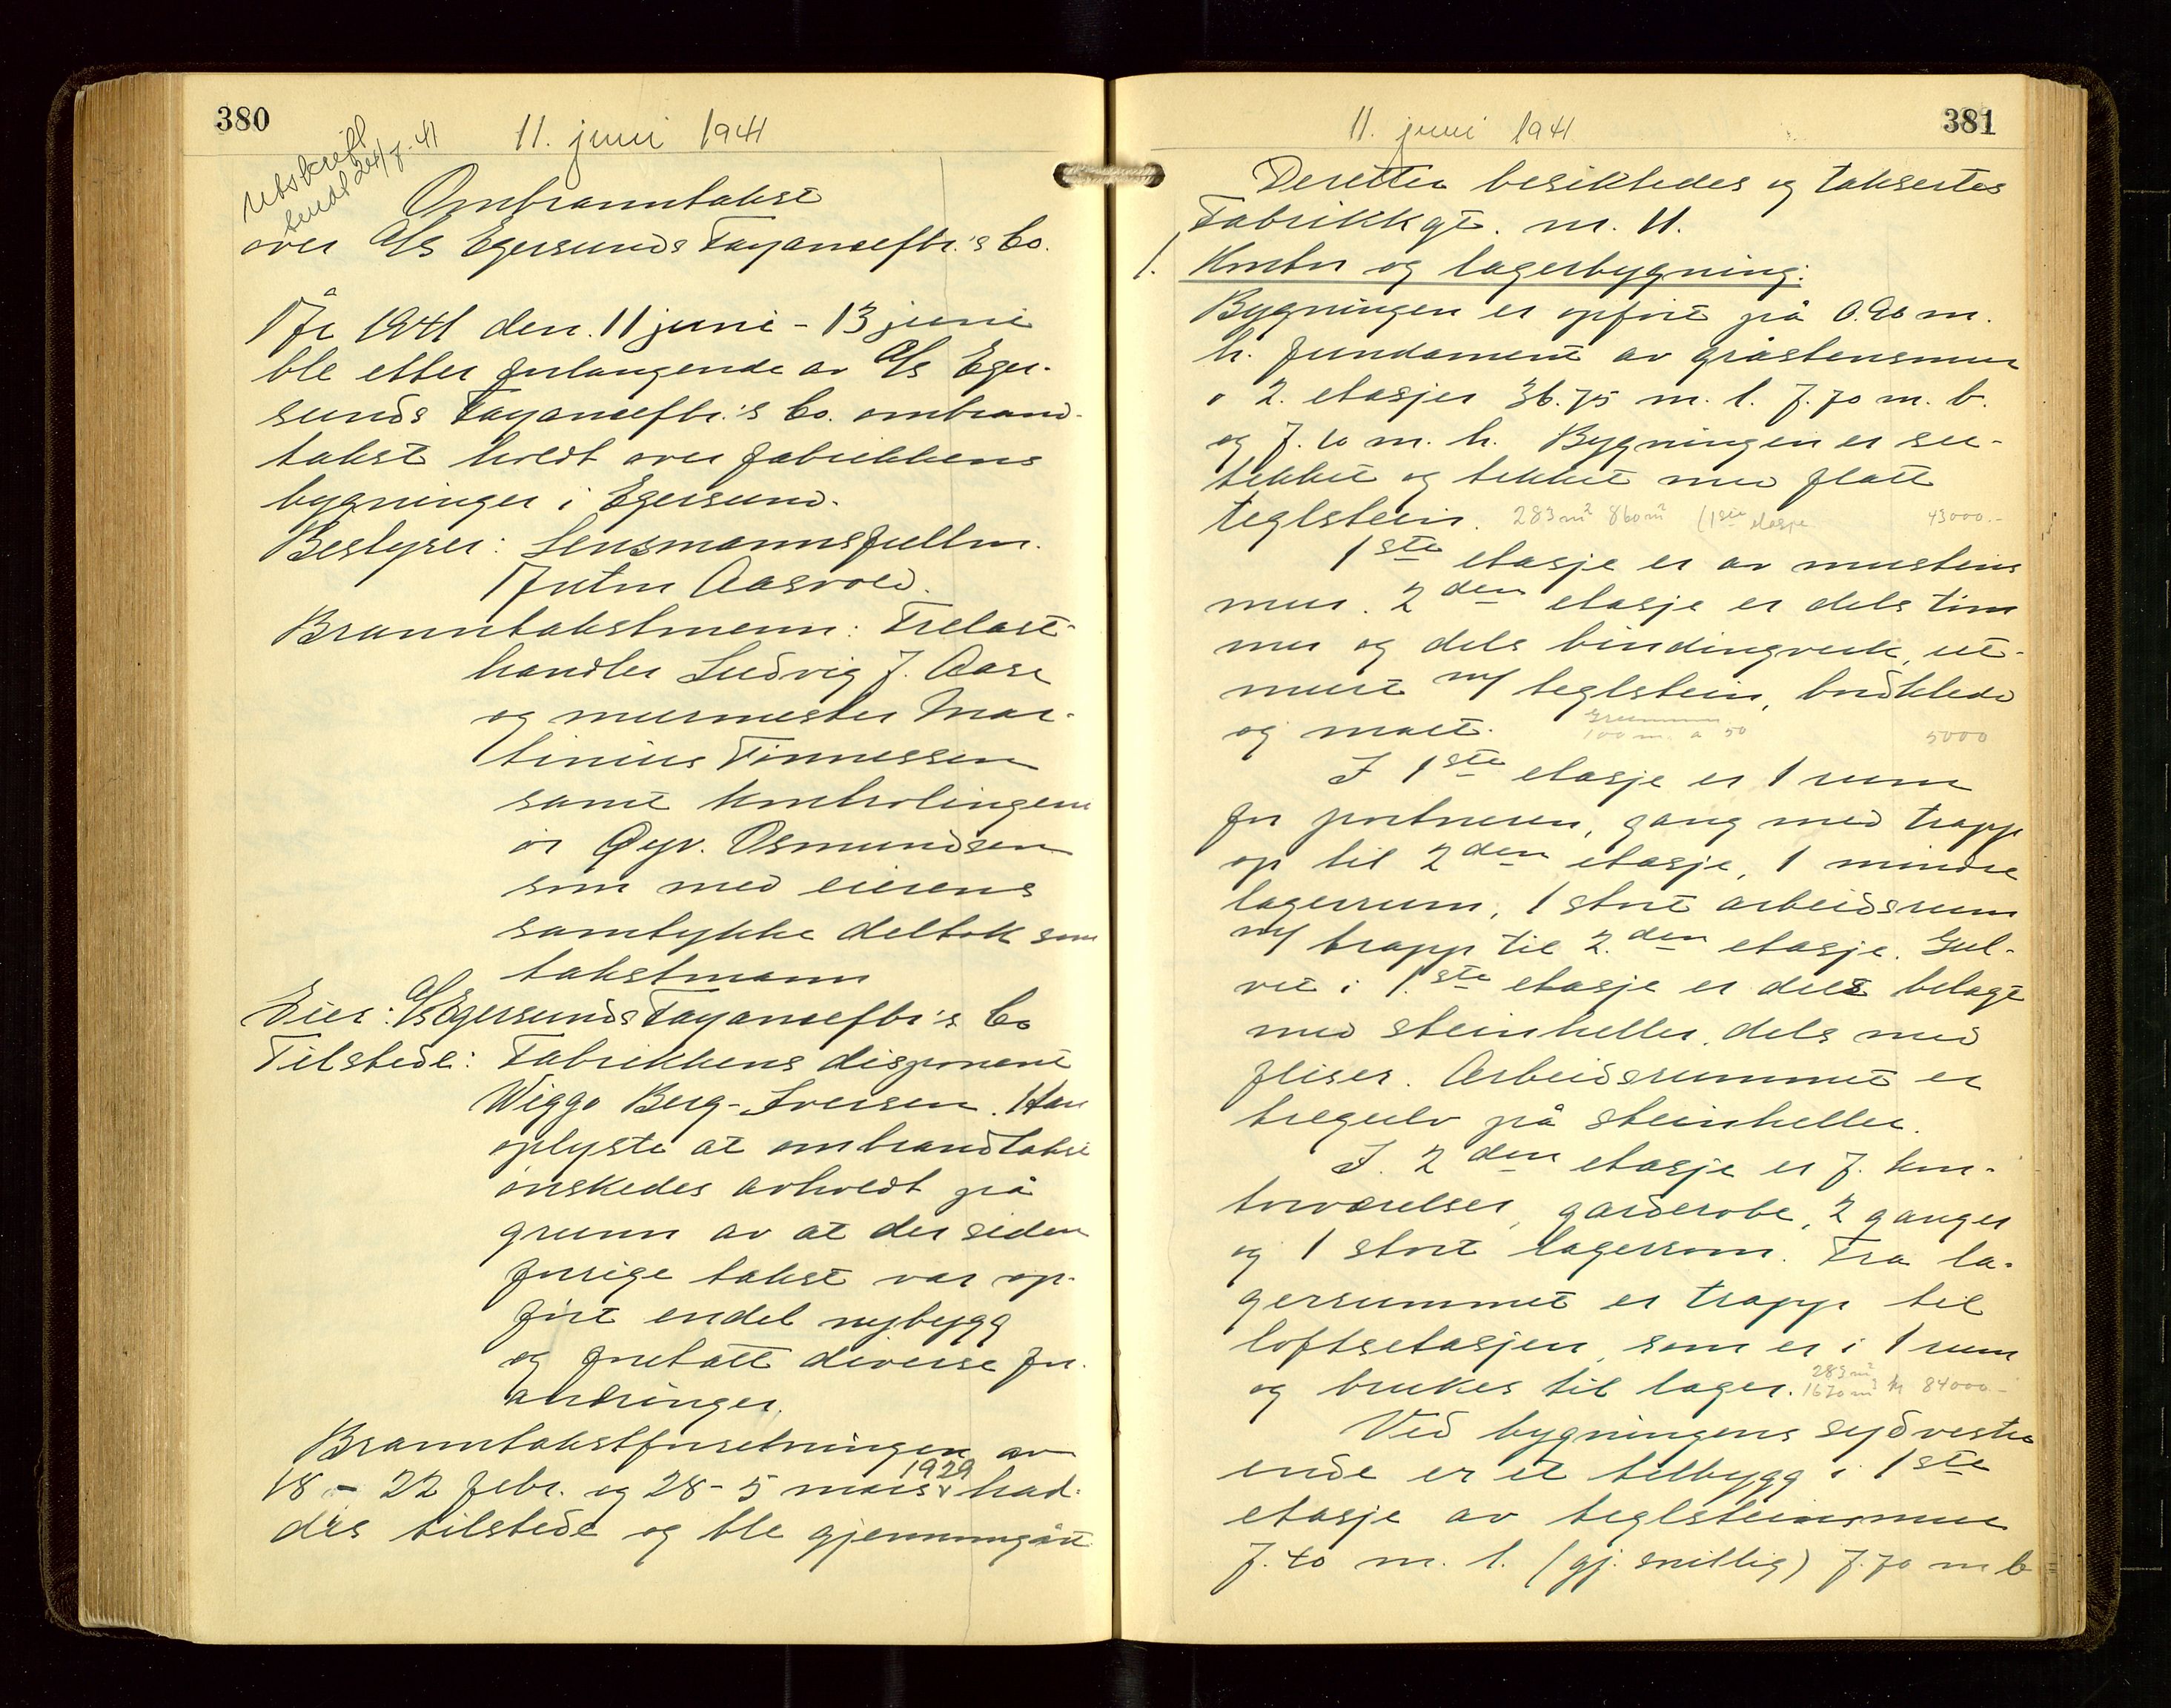 380
11. juni 1941
Utskrift
sendt 24/7-41
Ombranntakst
over A/S Egersunds Fayancefbr.'s Co.
År 1941 den 11 juni - 13 juni
ble etter forlangende av A/S Eger-
sunds Fayancefbr.'s Co. ombrand-
takst holdt over fabrikkens
bygninger i Egersund.
Bestyrer: Lensmannsfullm.
Anton Aasvold.
Branntakstmenn: Trelast-
handler Ludvig J. Aase
og murmester Mar-
tinius Tønnessen
samt kontrolingeni
ør Øyv. Osmundsen
som med eierens
samtykke deltok som
takstmann
Eier: A/S Egersunds Fayancefbr's Co
Tilstede: Fabrikkens disponent
Wiggo Berg-Iversen. Han
oplyste at ombrandtakst
ønskedes avholdt på
grunn av at der siden
forrige takst var op-
ført endel nybygg
og foretatt diverse for-
andringer.
Branntakstforretningen av
18 - 22 febr. og 28 - 5 mars 1929 had-
des tilstede og ble gjennomgått
381
11. juni 1941
Deretter besiktedes og taksertes
Fabrikkgt. nr. 11.
1. Kontor og lagerbygning:
Bygningen er opført på 0.90 m.
h. fundament av gråstensmur
i 2. etasjer 36.75 m. l. 7.70 m. b.
og 7.10 m. h. Bygningen er su-
tekket og tekket med flatt
teglstein. 283 m² 860 m² (1ste etasje 43000.-
1ste etasje er av murstens
mur. 2den etasje er dels tøm
mer og dels bindingverk, ut-
murt m/ teglstein, bordkledd
og malt. 100 m. a 50 5000
I 1ste etasje er 1 rum
for portneren, gang med trapp
op til 2den etasje, 1 mindre
lagerrum, 1 stort arbeidsrum
m/ trapp til 2.den etasje. Gul-
vet i 1.ste etasje er dels belagt
med steinheller, dels med
fliser. Arbeidsrummet er
tregulv på steinheller.
I. 2den etasje er 7. kon-
torværelser, garderobe, 2 ganger
og 1 stort lagerrom. Fra la-
gerrummet er trapp til
loftsetasjen, som er i 1 rum
og brukes til lager. 283 m² 1670 m³ kr 84000.-
Ved bygningens sydvestre
ende er et tilbygg i 1ste
etasje av teglsteinsmur
7.40 m. l. (gj. snittlig) 7.70 m b